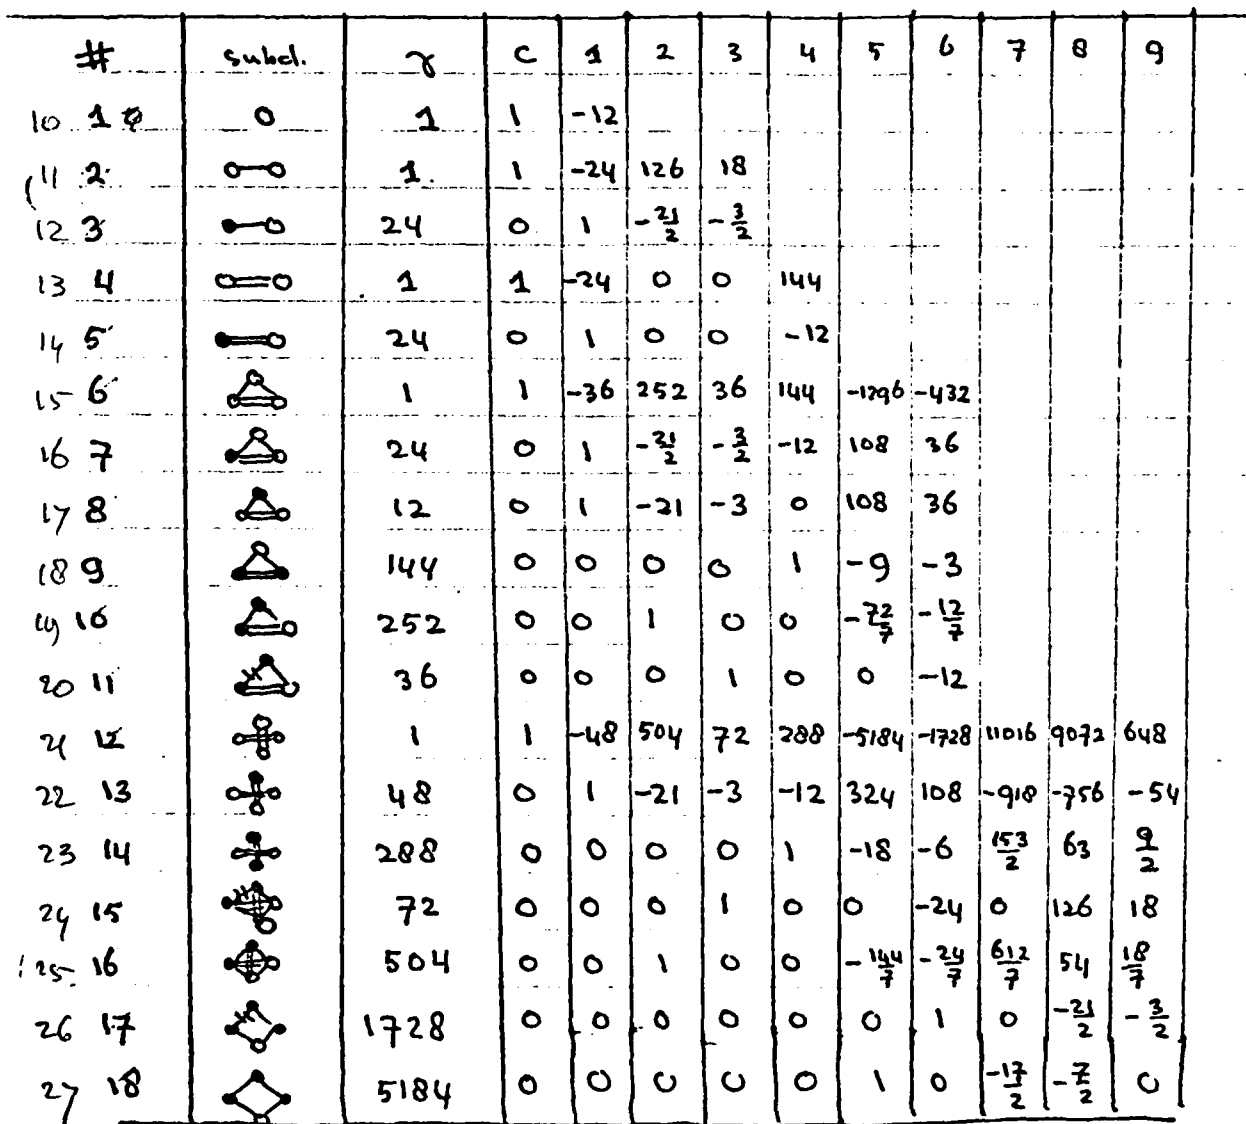 # subcl. γ C 1 2 3 4 5 6 7 8 9
10 1 1 1 -12
11 2 1. 1 -24 126 18
12 3 24 0 1 -21/2 -3/2
13 4 1 1 -24 0 0 144
14 5 24 0 1 0 0 -12
15 6 1 1 -36 252 36 144 -1296 -432
16 7 24 0 1 -21/2 -3/2 -12 108 36
17 8 12 0 1 -21 -3 0 108 36
18 9 144 0 0 0 0 1 -9 -3
19 10 252 0 0 1 0 0 -72/7 -12/7
20 11 36 0 0 0 1 0 0 -12
21 12 1 1 -48 504 72 288 -5184 -1728 11016 9072 648
22 13 48 0 1 -21 -3 -12 324 108 -918 -756 -54
23 14 288 0 0 0 0 1 -18 -6 153/2 63 9/2
24 15 72 0 0 0 1 0 0 -24 0 126 18
25 16 504 0 0 1 0 0 -144/7 -24/7 612/7 54 18/7
26 17 1728 0 0 0 0 0 0 1 0 -21/2 -3/2
27 18 5184 0 0 0 0 0 1 0 -17/2 -7/2 0